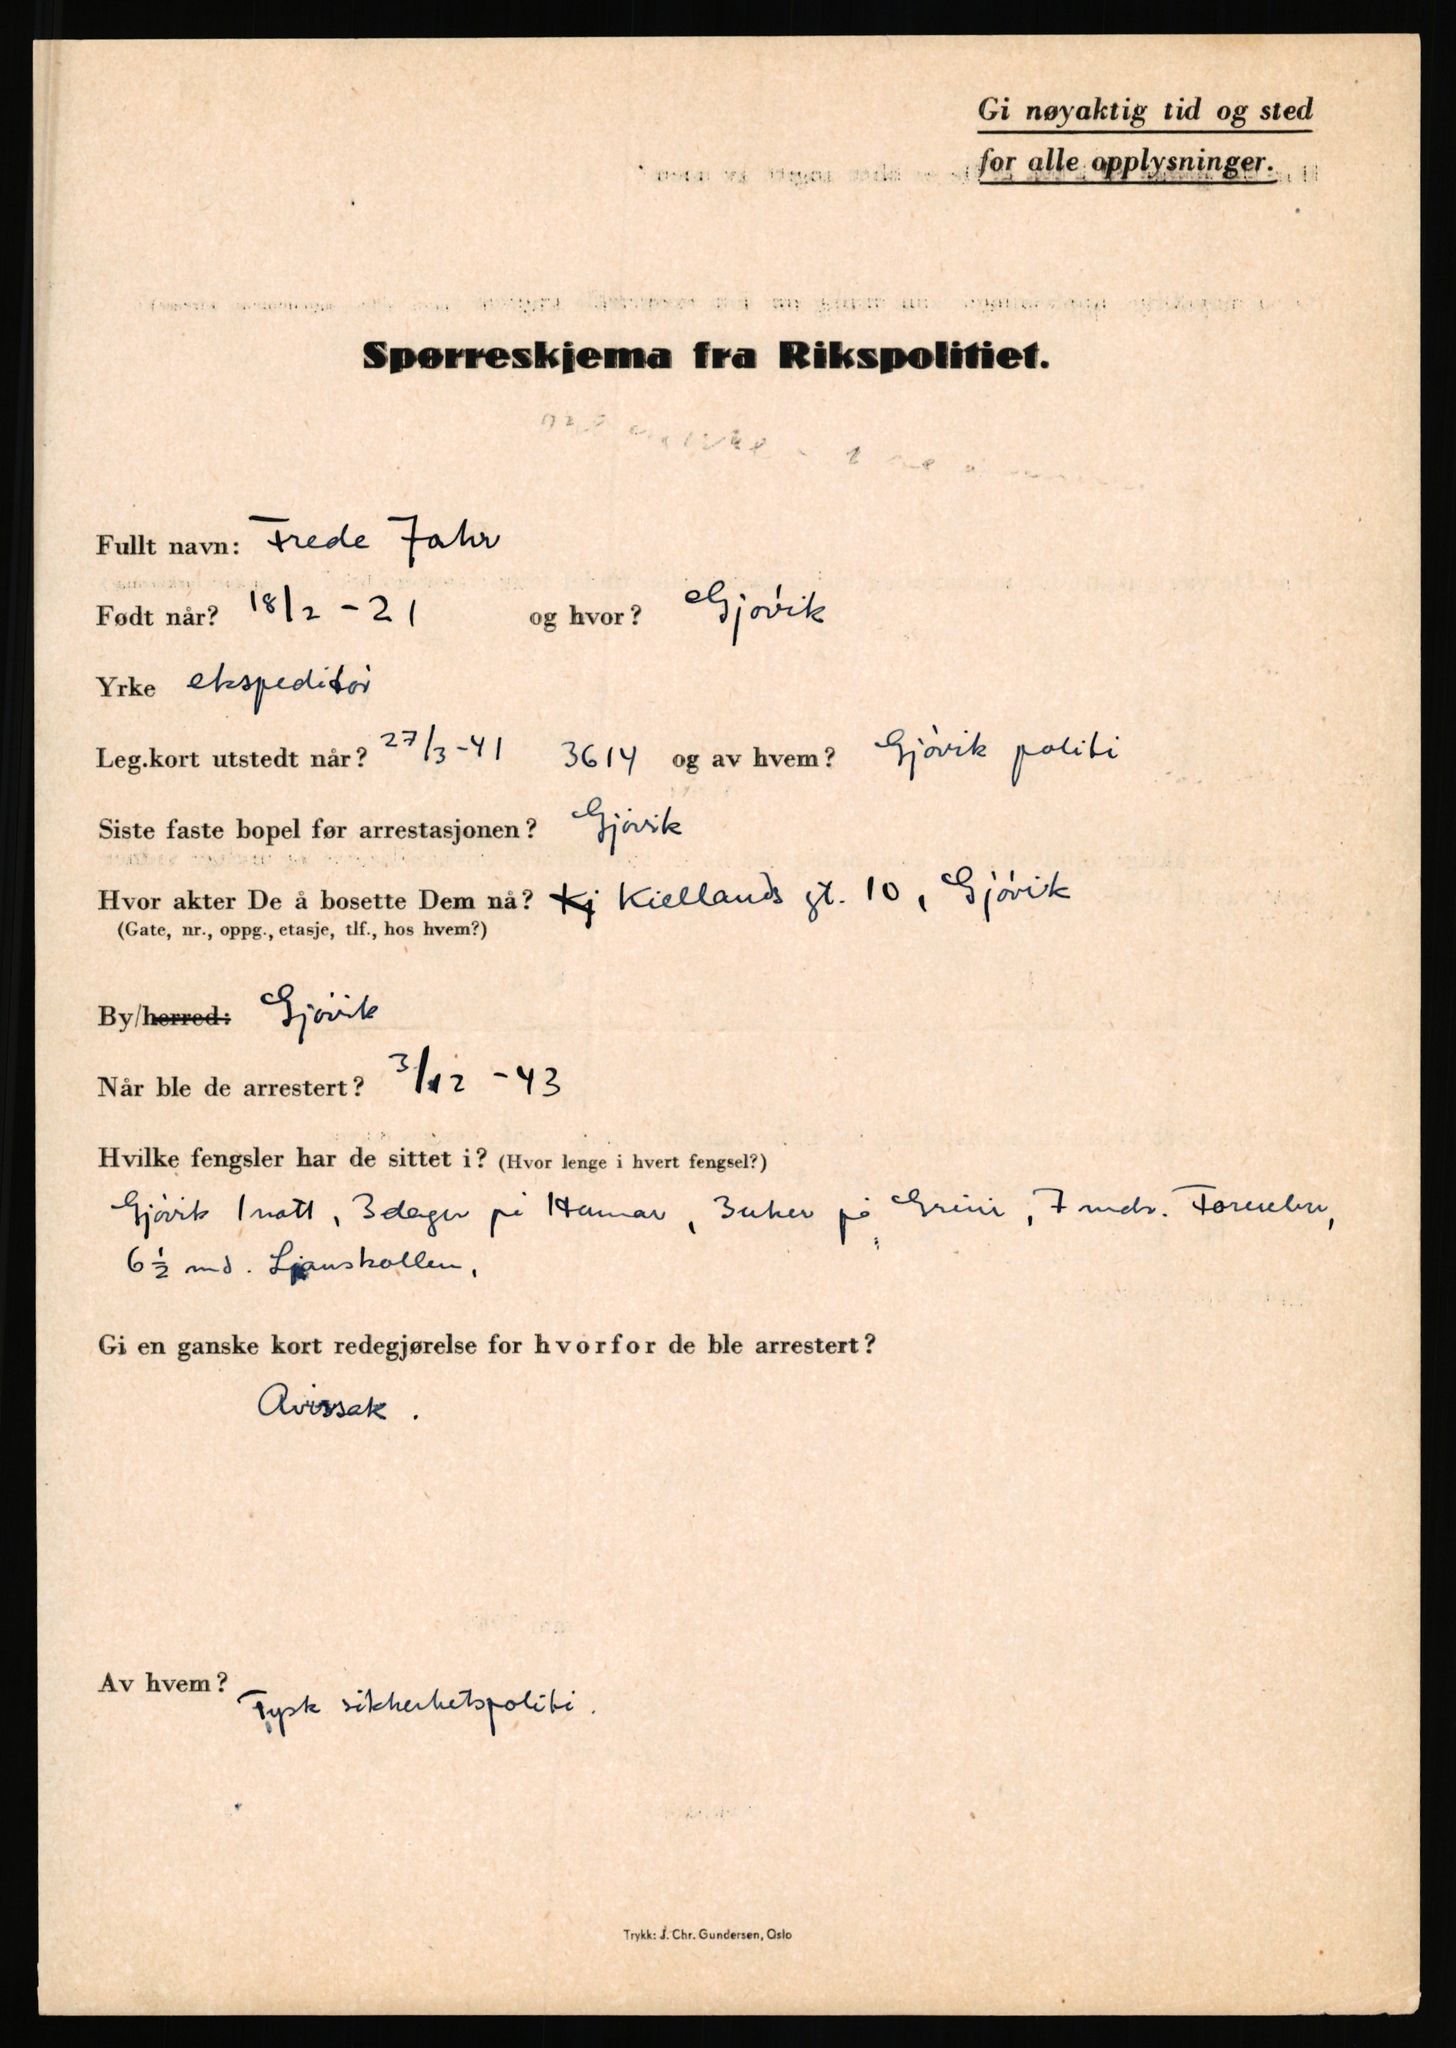 Gi nøyaktig tid og sted
for alle opplysninger.
Spørreskjema fra Rikspolitiet.
Fullt navn: Frede Jahr
Født når? 18/2 - 21 og hvor? Gjøvik
Yrke ekspeditør
Leg.kort utstedt når? 27/3-41 3614 og av hvem? Gjøvik politi
Siste faste bopel før arrestasjonen? Gjøvik
Hvor akter De å bosette Dem nå? Kj Kiellands gt. 10, Gjøvik
(Gate, nr., oppg., etasje, tlf., hos hvem?)
By/herred: Gjøvik
Når ble de arrestert? 3/12 - 43
Hvilke fengsler har de sittet i? (Hvor lenge i hvert fengsel?)
Gjøvik 1 natt, 3 dager på Hamar, 3 uker på Grini, 7 mdr. Fornebu,
6 ½ md. Ljanskollen.
Gi en ganske kort redegjørelse for hvorfor de ble arrestert?
Avissak.
Av hvem?
Tysk sikkerhetspoliti.
Trykk: J. Chr. Gundersen, Oslo